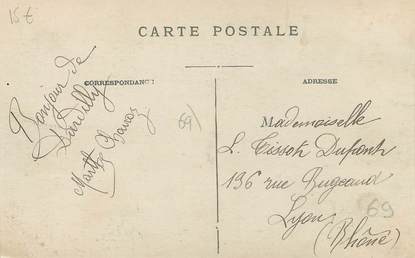 15 €
CARTE POSTALE
CORRESPONDANCE
ADRESSE
Bonjour de
Dardilly
Marth
69)
Mademoiselle
L. Tissot Dufont
196 rue Bugeaud
Lyon
69
(Rhône)